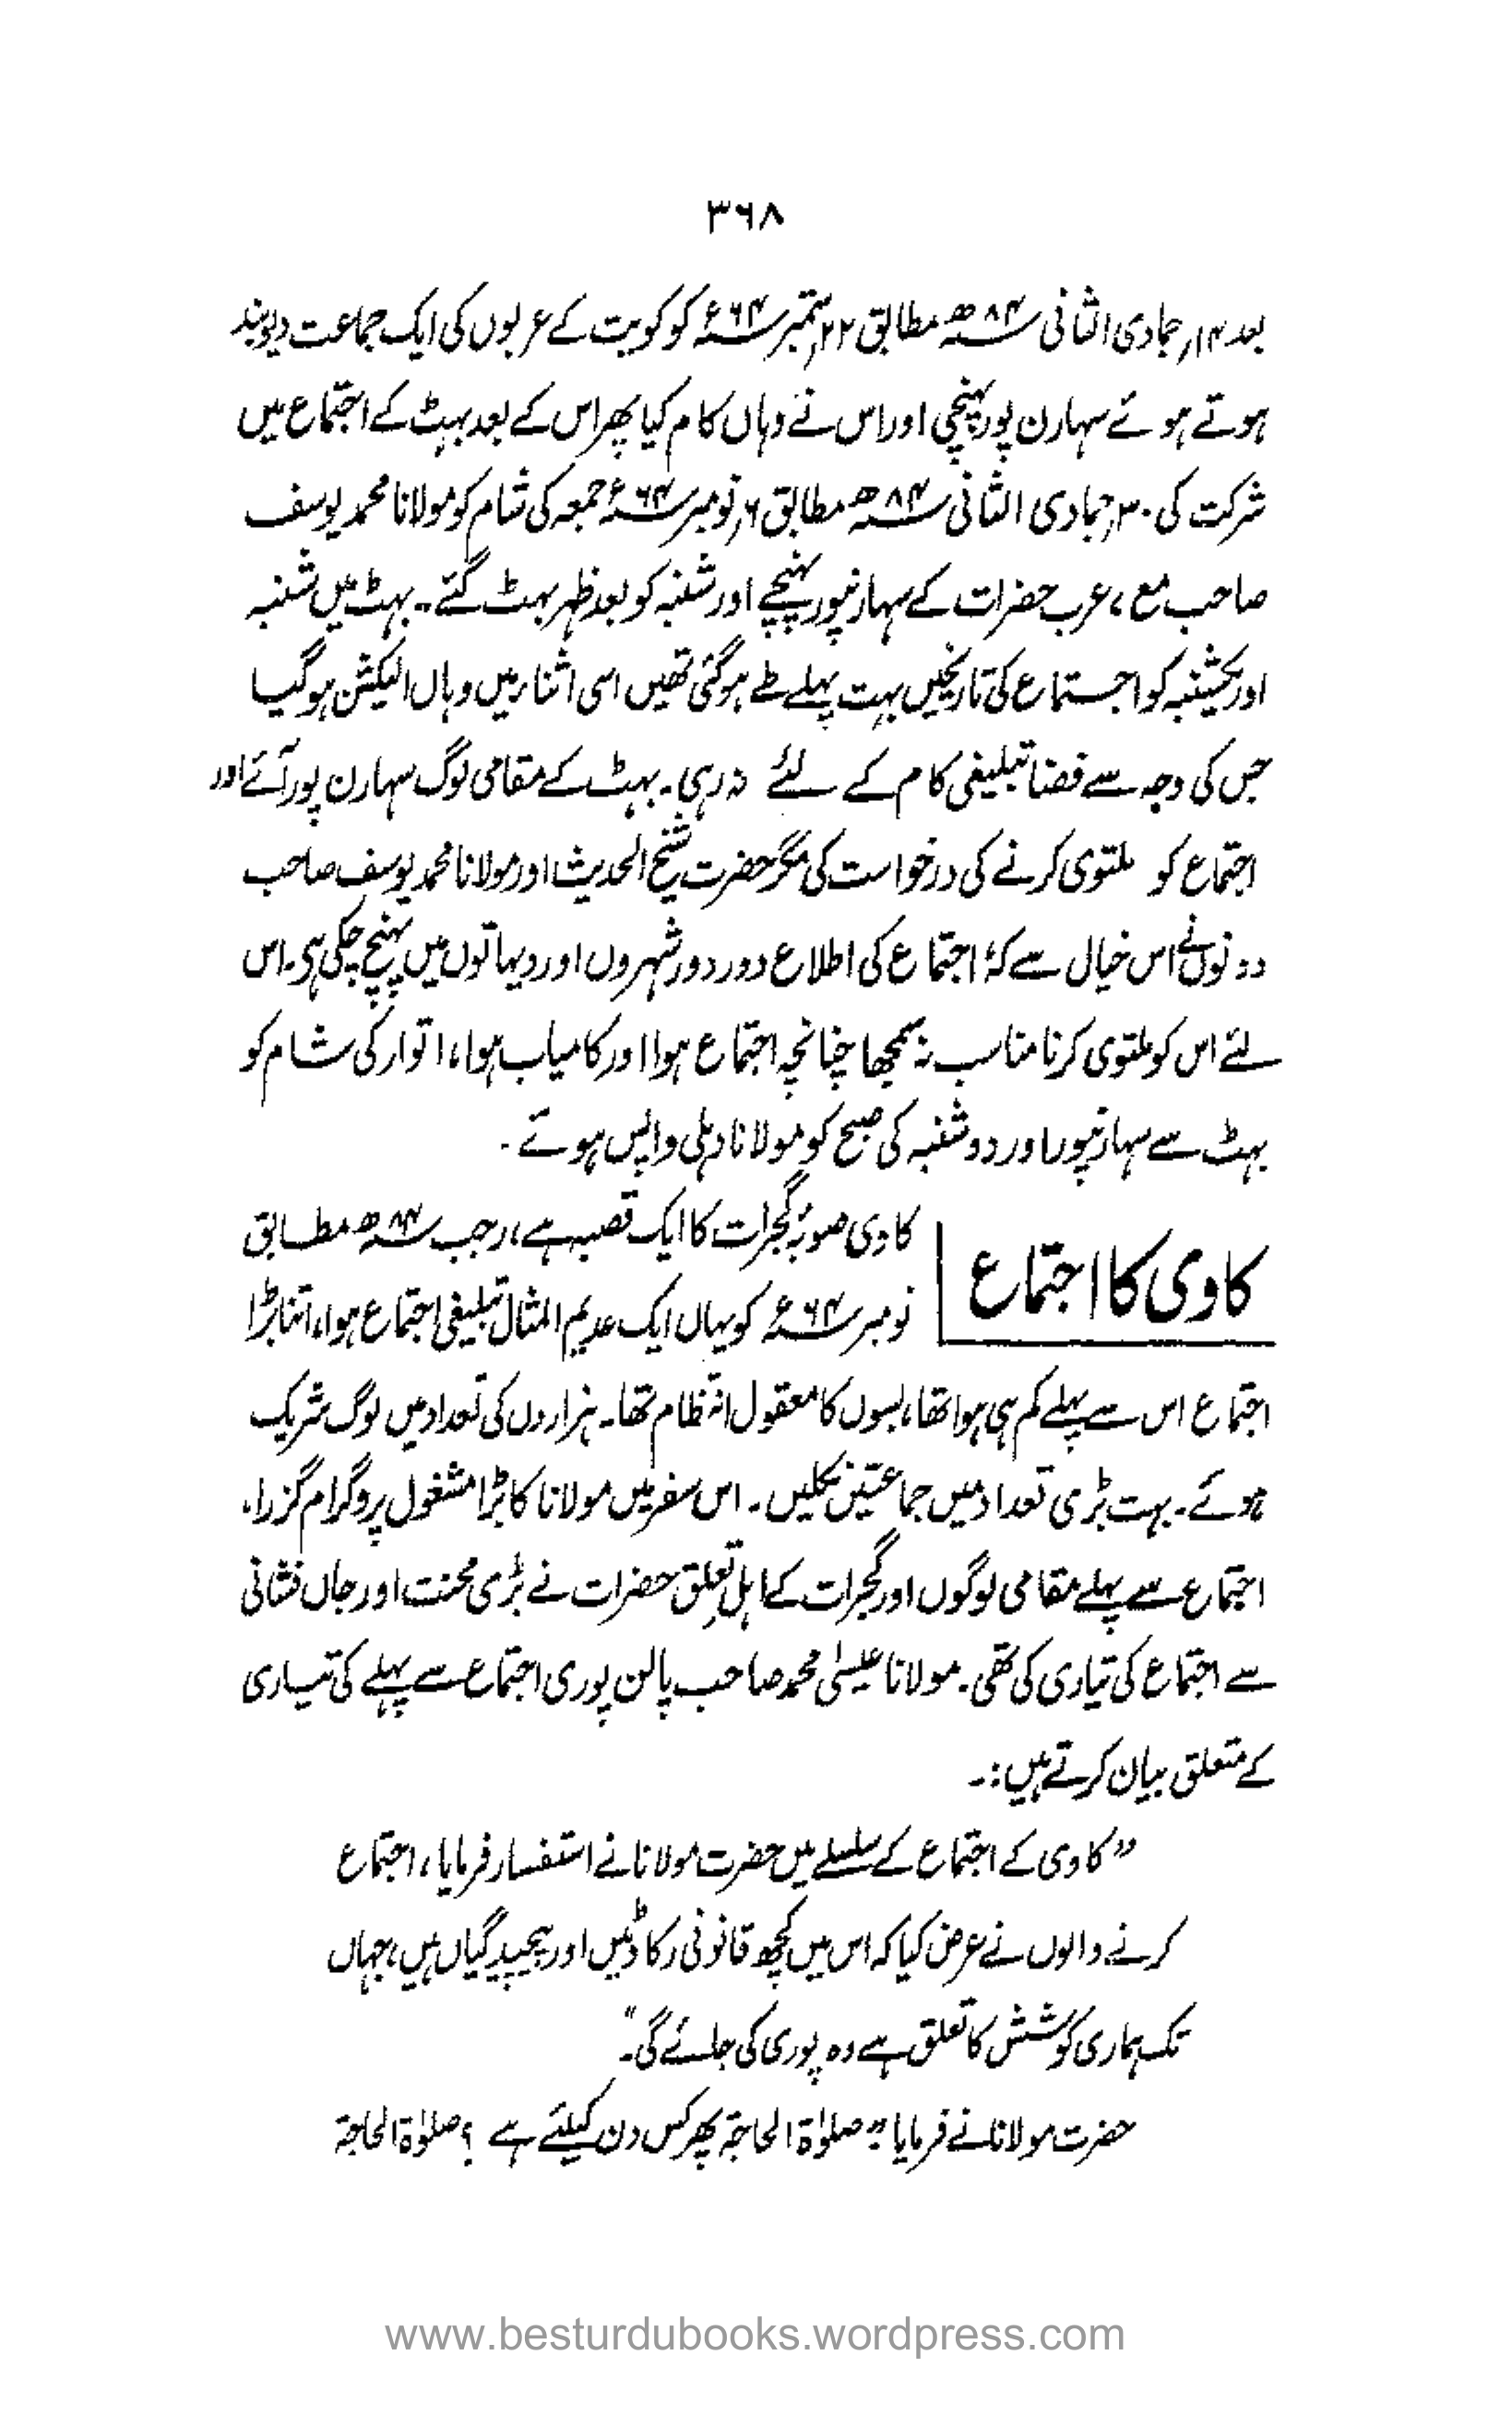 ۳۶۸
بعد ۱۴؍ جمادی الثانی ۸۴ھ مطابق ۲۲؍ ستمبر ۶۴ء کو کویت کے عربوں کی ایک جماعت دیوبند
ہوتے ہوئے سہارن پور پہنچی اور اس نے وہاں کام کیا پھر اس کے بعد بہٹ کے اجتماع میں
شرکت کی ۔ ۳۰؍ جمادی الثانی ۸۴ھ مطابق ۶؍ نومبر ۶۴ء جمعہ کی شام کو مولانا محمد یوسف
صاحب مع ، عرب حضرات کے سہارنپور پہنچے اور شنبہ کو بعد ظہر بہٹ گئے ۔ بہٹ میں شنبہ
اور یکشنبہ کو اجتماع کی تاریخیں بہت پہلے طے ہوگئی تھیں اسی اثناء میں وہاں الیکشن ہوگیا
جس کی وجہ سے فضا تبلیغی کام کے لئے نہ رہی ۔ بہٹ کے مقامی لوگ سہارن پور آئے اور
اجتماع کو ملتوی کرنے کی درخواست کی مگر حضرت شیخ الحدیث اور مولانا محمد یوسف صاحب
دونوں نے اس خیال سے کہ اجتماع کی اطلاع دور دور شہروں اور دیہاتوں میں پہنچ چکی ہی ۔ اس
لئے اس کو ملتوی کرنا مناسب نہ سمجھا چنانچہ اجتماع ہوا اور کامیاب ہوا ، اتوار کی شام کو
بہٹ سے سہارنپور اور دو شنبہ کی صبح کو مولانا دہلی واپس ہوتے ۔
کاوی کا اجتماع
کاوی صوبۂ گجرات کا ایک قصبہ ہے ، رجب ۸۴ھ مطابق
نومبر ۶۴ء کو یہاں ایک عدیم المثال تبلیغی اجتماع ہوا ، اتنا بڑا
اجتماع اس سے پہلے کم ہی ہوا تھا ، بسوں کا معقول انتظام تھا ۔ ہزاروں کی تعداد میں لوگ شریک
ہوئے ۔ بہت بڑی تعداد میں جماعتیں نکلیں ۔ اس سفر میں مولانا کا بڑا مشغول پروگرام گزرا ،
اجتماع سے پہلے مقامی لوگوں اور گجرات کے اہل تعلق حضرات نے بڑی محنت اور جاں فشانی
سے اجتماع کی تیاری کی تھی ۔ مولانا عیسیٰ محمد صاحب پالن پوری اجتماع سے پہلے کی تیاری
کے متعلق بیان کرتے ہیں :۔
” کاوی کے اجتماع کے سلسلے میں حضرت مولانا نے استفسار فرمایا ، اجتماع
کرنے والوں نے عرض کیا کہ اس میں کچھ قانونی رکاوٹیں اور پیچیدگیاں ہیں ، جہاں
تک ہماری کوشش کا تعلق ہے وہ پوری کی جائے گی ۔“
حضرت مولانا نے فرمایا ” صلوٰۃ الحاجۃ پھر کس دن کیلئے ہے ؟ صلوٰۃ الحاجۃ
www.besturdubooks.wordpress.com